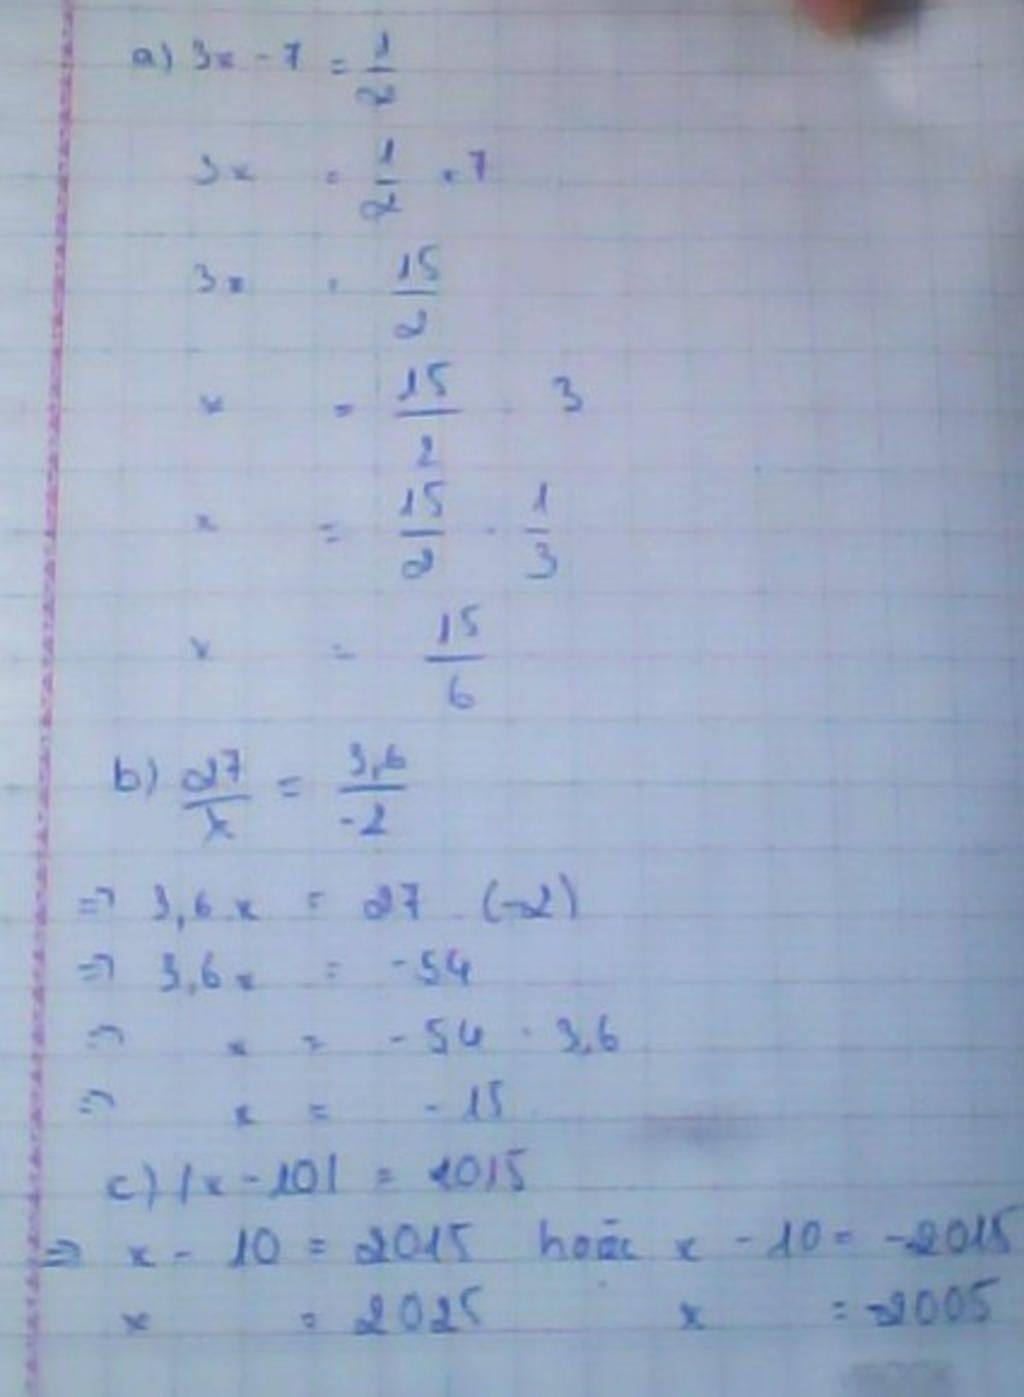 a) 3x - 7 = 1/2
3x = 1/2 + 7
3x = 15/2
x = 15/2 : 3
x = 15/2 . 1/3
x = 15/6
b) 27/x = 3,6/-2
=> 3,6.x = 27 . (-2)
=> 3,6x = -54
=> x = -54 : 3,6
=> x = -15
c) |x - 10| = 2015
=> x - 10 = 2015 hoặc x - 10 = -2015
x = 2025 x = -2005